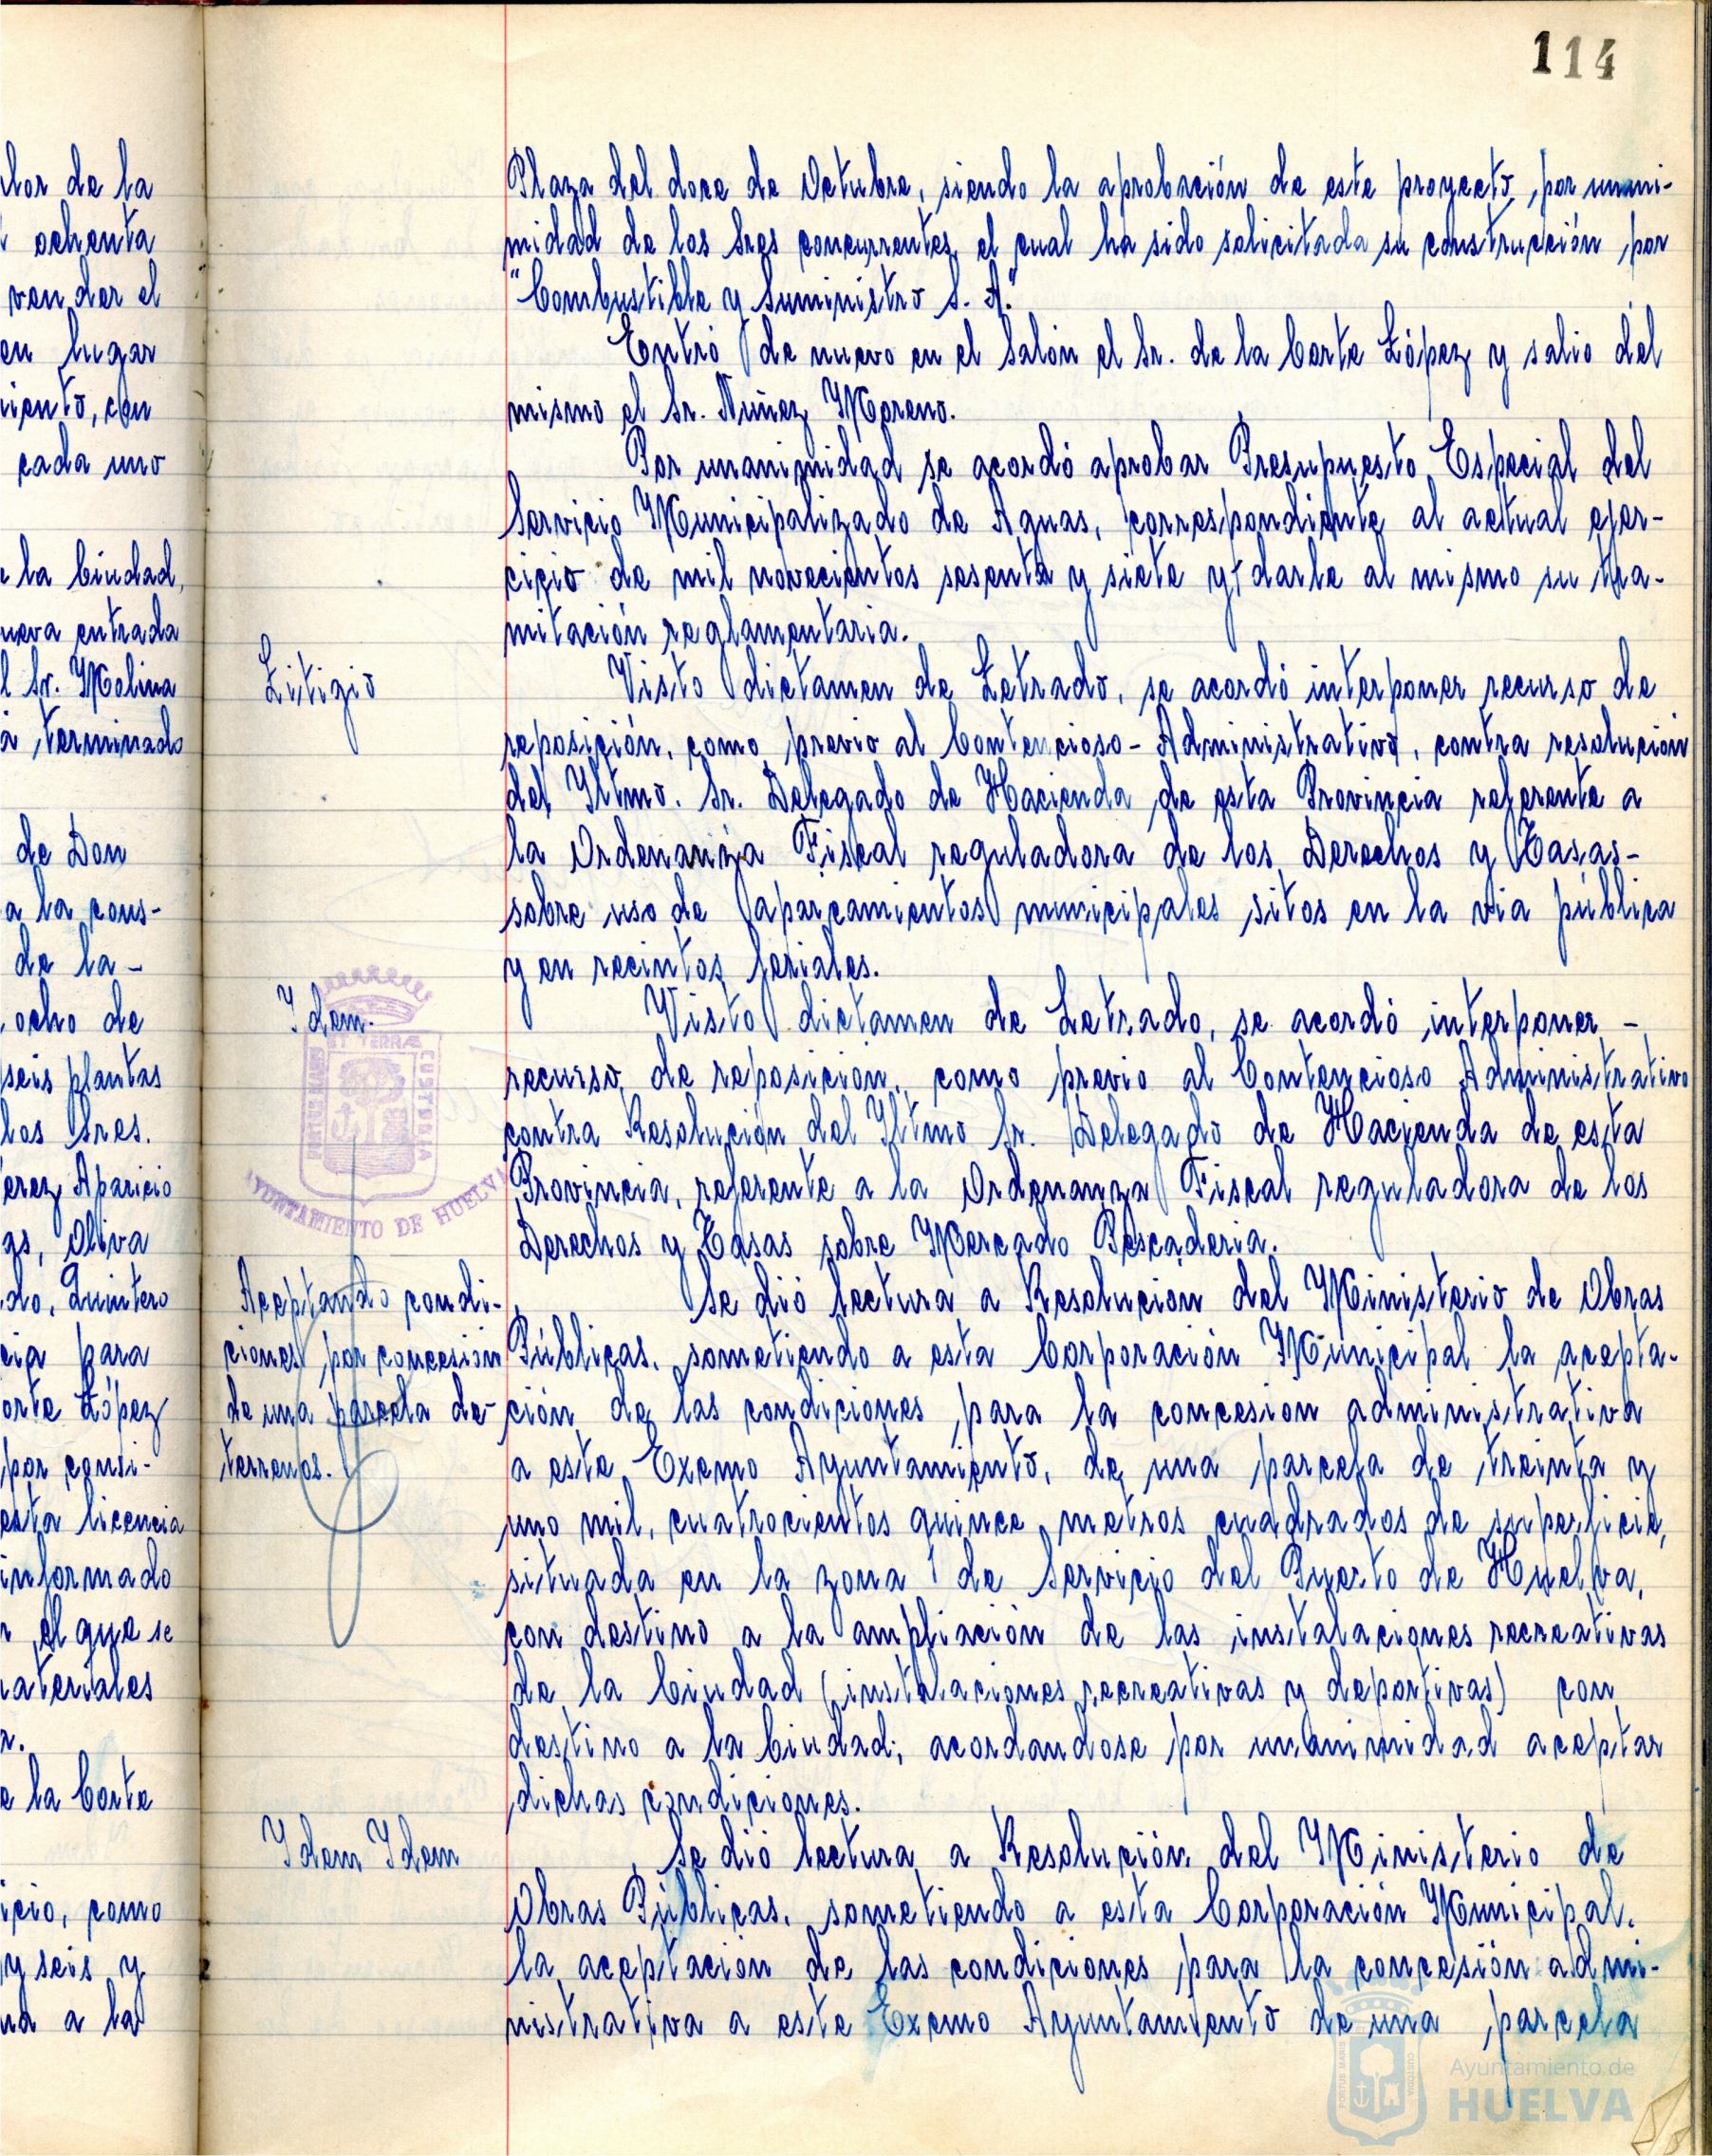 114
lor de la
ochenta
vender el
en lugar
iento, con
cada uno
la Ciudad,
ueva entrada
l Sr. Molina
a terminado
de Don
a la cons-
de la-
ocho de
seis plantas
los Sres.
erez Aparicio
gs, Oliva
do, Quintero
cia para
orte López
por consi-
esta licencia
informado
el que se
ateriales
a.
e la Corte
icio, como
y seis y
a la
Plaza del doce de Octubre, siendo la aprobación de este proyecto, por unani-
midad de los Sres concurrentes, el cual ha sido solicitada su construcción, por
"Combustible y Suministro S. A."
Entró de nuevo en el Salón el Sr. de la Corte López y salio del
mismo el Sr. Núñez Moreno.
Por unanimidad se acordó aprobar Presupuesto Especial del
Servicio Municipalizado de Aguas, correspondiente al actual ejer-
cicio de mil novecientos sesenta y siete y darle al mismo su tra-
mitación reglamentaria.
Litigio
Visto dictamen de Letrado, se acordó interponer recurso de
reposición, como previo al Contencioso-Administrativo, contra resolución
del Yltmo. Sr. Delegado de Hacienda de esta Provincia referente a
la Ordenanza Fiscal reguladora de los Derechos y Tasas-
sobre uso de aparcamientos municipales sitos en la via pública
y en recintos feriales.
Idem.
Visto dictamen de Letrado, se acordó interponer -
recurso de reposición, como previo al Contencioso Administrativo
contra Resolución del Yltmo Sr. Delegado de Hacienda de esta
Provincia, referente a la Ordenanza Fiscal reguladora de los
Derechos y Tasas sobre Mercado Pescaderia.
PORTUS MARIS ET TERRAE CUSTODIA
AYUNTAMIENTO DE HUELVA
Aceptando condi-
ciones por concesión
de una parcela de-
terrenos.
Se dió lectura a Resolución del Ministerio de Obras
Públicas, sometiendo a esta Corporación Municipal la acepta-
ción de las condiciones para la concesion administrativa
a este Excmo Ayuntamiento, de una parcela de treinta y
uno mil, cuatrocientos quince metros cuadrados de superficie,
situada en la zona de Servicio del Puerto de Huelva,
con destino a la ampliación de las instalaciones recreativas
de la Ciudad (instalaciones recreativas y deportivas) con
destino a la Ciudad; acordandose por unanimidad aceptar
dichas condiciones.
Idem Idem
Se dió lectura a Resolución del Ministerio de
Obras Públicas, sometiendo a esta Corporación Municipal,
la aceptación de las condiciones para la concesión admi-
nistrativa a este Excmo Ayuntamiento de una parcela
Ayuntamiento de
HUELVA